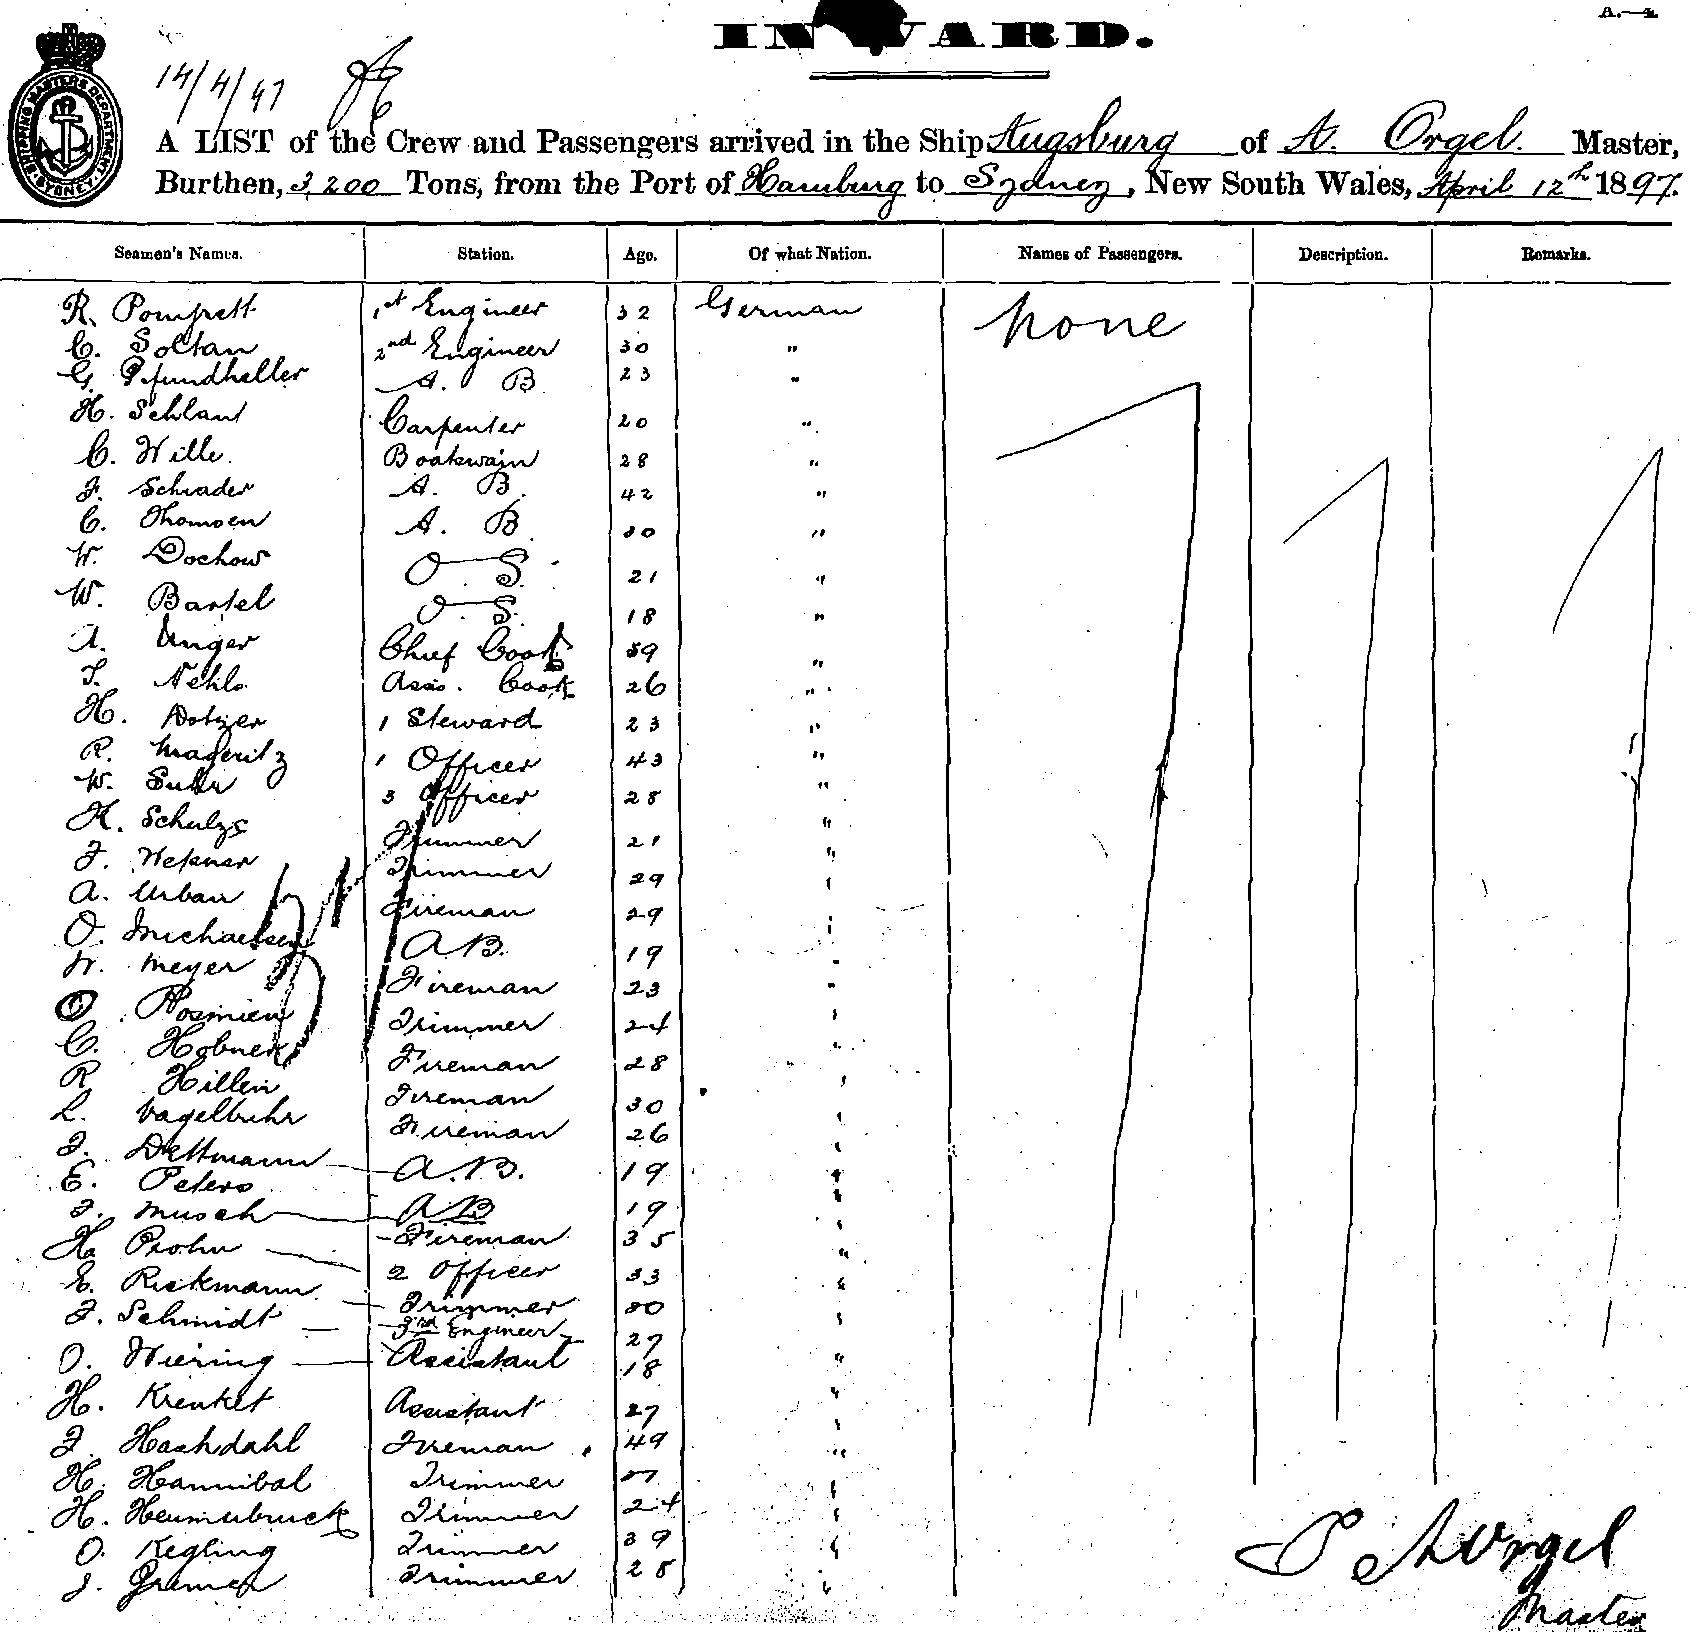 A.—4
INWARD.
14/4/97
SHIPPING MASTERS DEPARTMENT SYDNEY
A LIST of the Crew and Passengers arrived in the Ship Augsburg of A. Orgel. Master,
Burthen, 3,200 Tons, from the Port of Hamburg to Sydney, New South Wales, April 12th 1897.
Seamen's Names. Station. Age. Of what Nation. Names of Passengers. Description. Remarks.
R. Pomprett 1st Engineer 32 German None
C. Soltan 2nd Engineer 30 "
G. Pfundheller A. B 23 "
H. Schlant Carpenter 20 "
C. Wille. Boatswain 28 "
F. Schrader A. B. 42 "
C. Thomsen A. B. 30 "
W. Dochow O S. 21 "
W. Bartel O S. 18 "
A. Unger Chief Cook 59 "
Nehls Ass. Cook 26 "
H. Dotzer 1 Steward 23 "
R. Mageritz 1 Officer 43 "
W. Suhr 3 Officer 28 "
K. Schulze Trimmer 21 "
F. Trimmer 29 "
A. Urban Fireman 29 "
O. Michaelsen A B. 19 "
W. Meyer Fireman 23 "
O. Rosmien Trimmer 24 "
C. Hobner Fireman 28 "
R Hillen Fireman 30 "
L. Vagelbuhr Fireman 26 "
F. Dettmann A. B. 19 "
E. Peters A B 19 "
F. Musch Fireman 35 "
H. Prohn 2 Officer 33 "
E. Rickmann Trimmer 30 "
F. Schmidt 3rd Engineer 27
O. Wiering Assistant 18 "
H. Krenkel Assistant 27 "
F. Hashdahl Fireman 49 "
H. Hannibal Trimmer "
H. Heumubruck Trimmer 24 "
O. Kegling Trimmer 39 "
J. Gremer Trimmer 28 "
A Orgel
Master